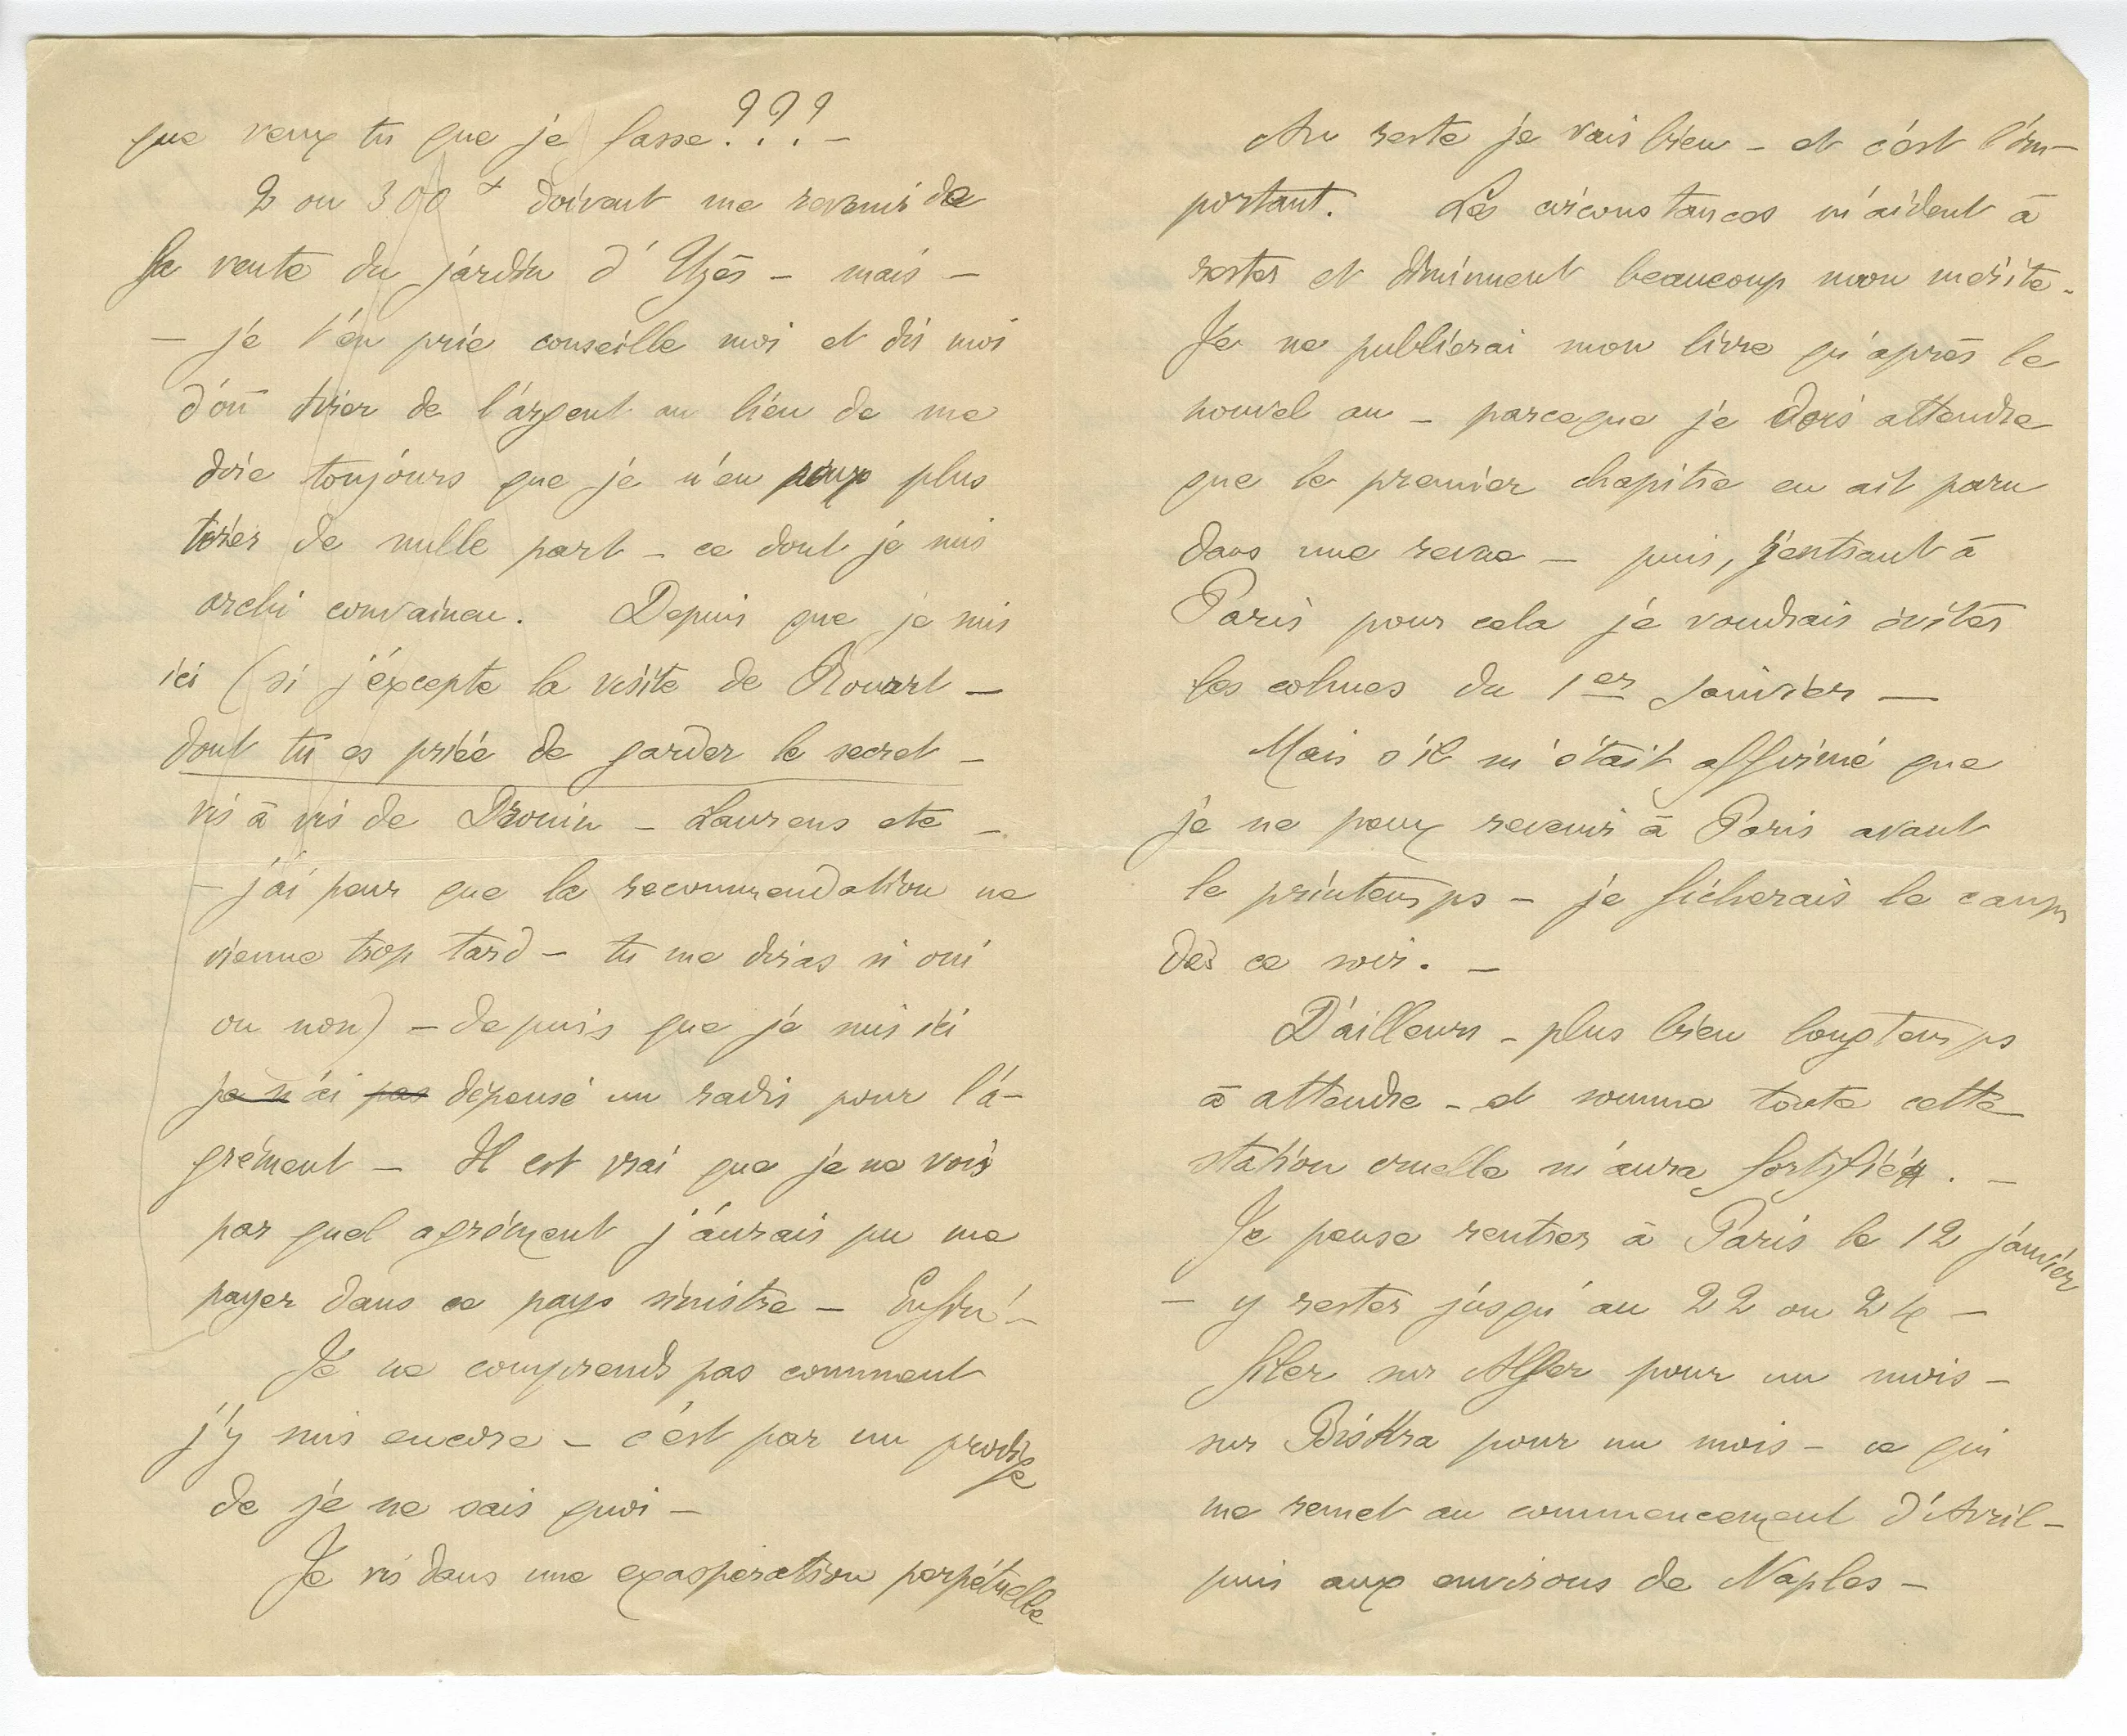 que veux tu que je fasse???–
2 ou 300 f doivent me revenir de
la vente du jardin d'Uzès – mais –
– je t'en prie conseille moi et dis moi
d'où tirer de l'argent au lieu de me
dire toujours que je n'en peux plus
tirer de nulle part – ce dont je suis
archi convaincu. Depuis que je suis
ici (si j'excepte la visite de Rouart –
dont tu es priée de garder le secret –
vis à vis de Drouin – Laurens etc –
– j'ai peur que la recommendation ne
vienne trop tard – tu me diras si oui
ou non) – depuis que je suis ici
je n'ai pas dépensé un radis pour l'a-
grément – Il est vrai que je ne vois
pas quel agrément j'aurais pu me
payer dans ce pays sinistre – Enfin! –
Je ne comprends pas comment
j'y suis encore – c'est par un prodige
de je ne sais quoi –
Je vis dans une exaspération perpétuelle
Au reste je vais bien – et c'est l'im-
portant. Les circonstances m'aident à
rester et diminuent beaucoup mon mérite.
Je ne publierai mon livre qu'après le
nouvel an – parceque je dois attendre
que le premier chapitre en ait paru
dans une revue – puis, rentrant à
Paris pour cela je voudrais éviter
les cohues du 1er Janvier –
Mais s'il m'était affirmé que
je ne peux revenir à Paris avant
le printemps – je ficherais le camp
dès ce soir. –
D'ailleurs – plus bien longtemps
à attendre – et somme toute cette
station cruelle m'aura fortifié. –
Je pense rentrer à Paris le 12 janvier
– y rester jusqu'au 22 ou 24 –
filer sur Alger pour un mois –
sur Biskra pour un mois – ce qui
me remet au commencement d'Avril –
puis aux environs de Naples –